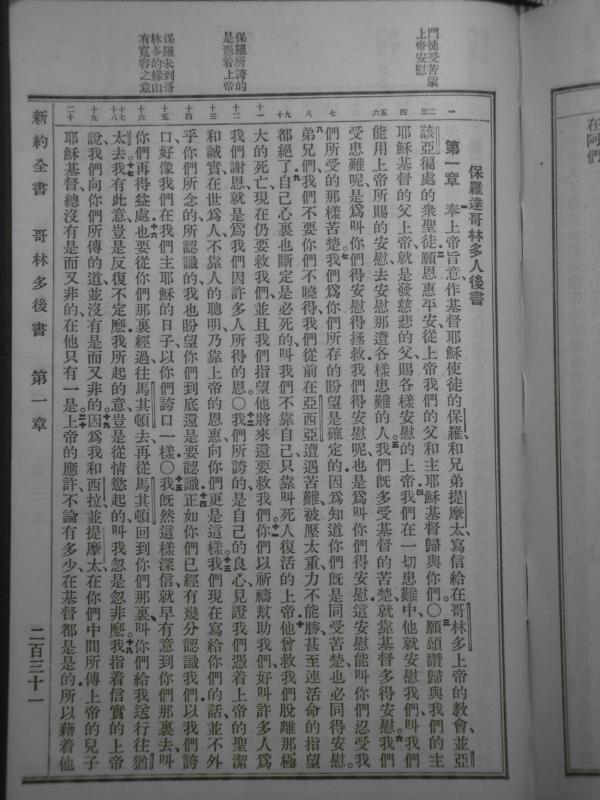 在阿們
門徒受苦蒙
上帝安慰
保羅所誇的
是憑着上帝
保羅未到哥
林多的緣由
有寬容之意
保羅達哥林多人後書
第一章 奉上帝旨意作基督耶穌使徒的保羅和兄弟提摩太寫信給在哥林多上帝的教會並亞
該亞徧處的衆聖徒願恩惠平安從上帝我們的父和主耶穌基督歸與你們〇願頌讚歸與我們的主
耶穌基督的父上帝就是發慈悲的父賜各樣安慰的上帝我們在一切患難中他就安慰我們叫我們
能用上帝所賜的安慰去安慰那遭各樣患難的人我們既多受基督的苦楚就靠基督多得安慰我們
受患難呢是爲叫你們得安慰得拯救我們得安慰呢也是爲叫你們得安慰這安慰能叫你們忍受我
們所受的那樣苦楚我們爲你們所存的盼望是確定的因爲知道你們既是同受苦楚也必同得安慰
弟兄們我們不要你們不曉得我們從前在亞西亞遭遇苦難被壓太重力不能勝甚至連活命的指望
都絕了自己心裏也斷定是必死的叫我們不靠自己只靠叫死人復活的上帝他曾救我們脫離那極
大的死亡現在仍要救我們並且我們指望他將來還要救我們你們以祈禱幫助我們好叫許多人爲
我們謝恩就是爲我們因許多人所得的恩〇我們所誇的是自己的良心見證我們憑着上帝的聖潔
和誠實在世爲人不靠人的聰明乃靠上帝的恩惠向你們更是這樣我們現在寫給你們的話並不外
乎你們所念的所認識的我也盼望你們到底還是要認識正如你們已經有幾分認識我們以我們誇
口好像我們在我們主耶穌的日子以你們誇口一樣〇我既然這樣深信就早有意到你們那裏去叫
你們再得益處也要從你們那裏經過往馬其頓去再從馬其頓回到你們那裏叫你們給我送行往猶
太去我有此意豈是反復不定麽我所起的意豈是從情慾起的叫我忽是忽非麽我指着信實的上帝
說我們向你們所傳的道並沒有是而又非的因爲我和西拉並提摩太在你們中間所傳上帝的兒子
耶穌基督總沒有是而又非的在他只有一是上帝的應許不論有多少在基督都是是的所以藉着他
新約全書 哥林多後書 第一章 二百三十一